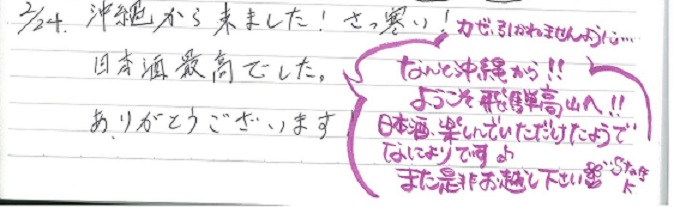 2/24. 沖縄から来ました！さっ寒い！
日本酒最高でした。
ありがとうございます
カゼ、引かれませんように…
なんと沖縄から!!
ようこそ飛騨高山へ!!
日本酒、楽しんでいただけたようで
なによりです♪
また是非お越し下さい